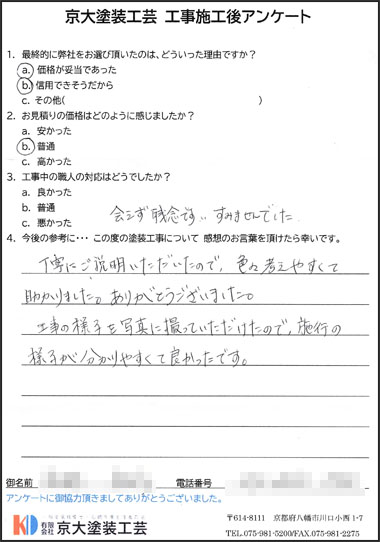 京大塗装工芸 工事施工後アンケート
1. 最終的に弊社をお選び頂いたのは、どういった理由ですか？
a. 価格が妥当であった
b. 信用できそうだから
c. その他( )
2. お見積りの価格はどのように感じましたか？
a. 安かった
b. 普通
c. 高かった
3. 工事中の職人の対応はどうでしたか？
a. 良かった
b. 普通
会えず残念です… すみませんでした
c. 悪かった
4. 今後の参考に･･･ この度の塗装工事について 感想のお言葉を頂けたら幸いです。
丁寧にご説明いただいたので、色々考えやすくて
助かりました。ありがとうございました。
工事の様子を写真に撮っていただけたので、施行の
様子が分かりやすくて良かったです。
御名前 電話番号
アンケートに御協力頂きましてありがとうございました。
KD 有限会社 京大塗装工芸
〒614-8111 京都府八幡市川口小西 1-7
TEL.075-981-5200/FAX.075-981-2275